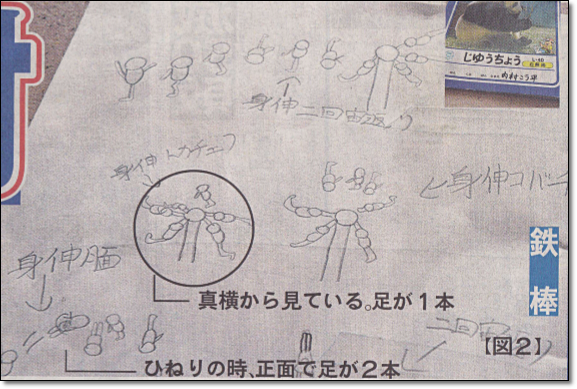 じゆうちょう
L-40
内村こう平
身伸二回宙返り
身伸トカチェフ
身伸コバー
身伸月面
鉄棒
真横から見ている。足が1本
二回宙
【図2】
ひねりの時、正面で足が2本